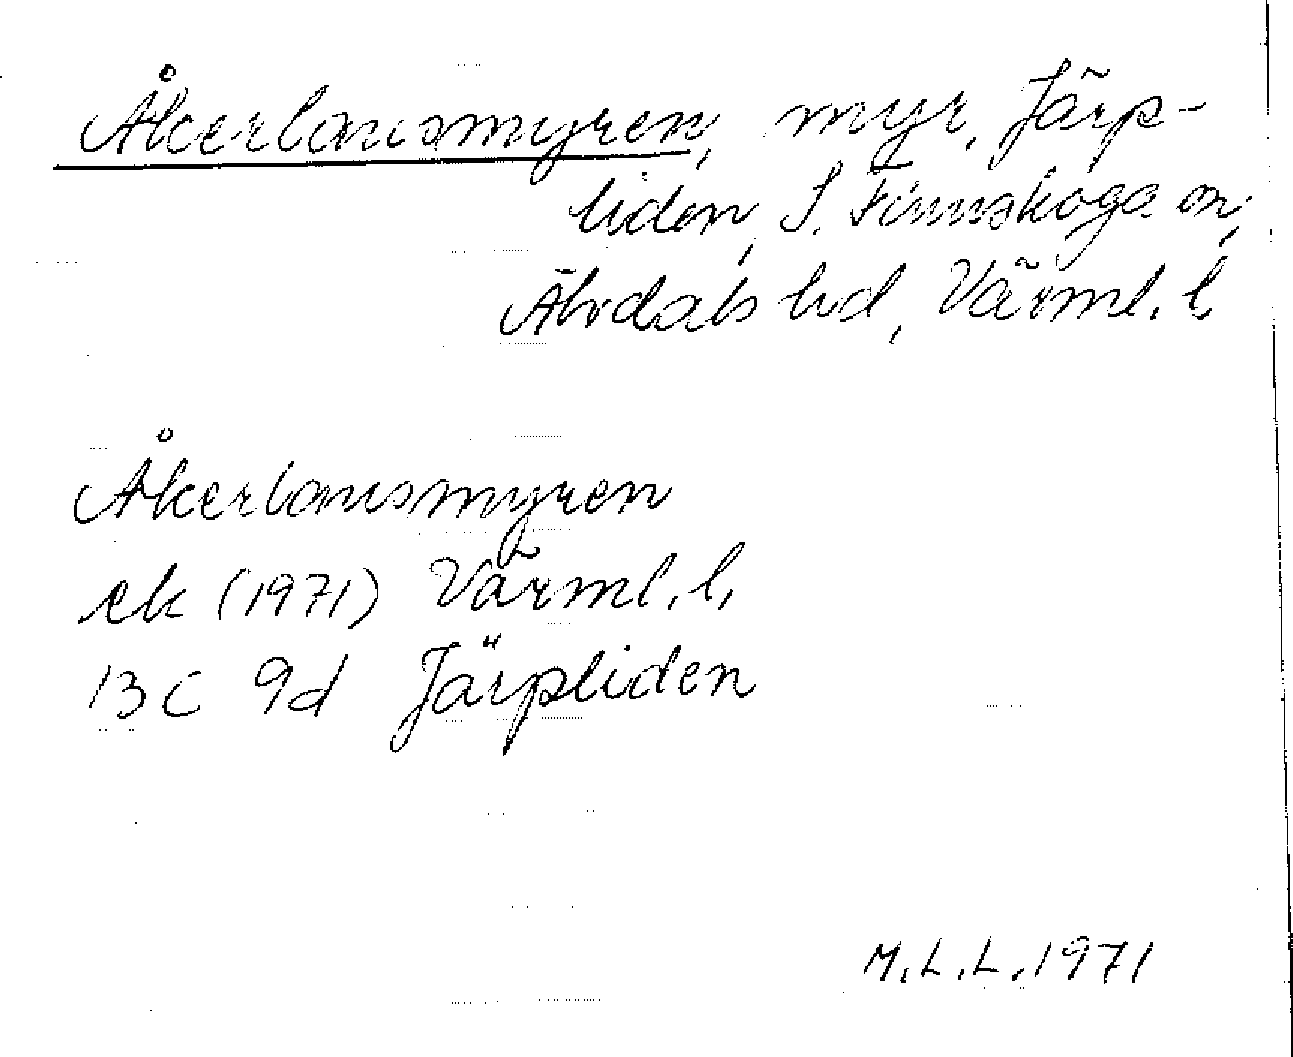 Åkerlausmyren, myr, Järp-
liden, S. Finnskoga sn,
Älvdals hd, Värml. l.
Åkerlausmyren
ek (1971) Värml. l.
13 C 9d Järpliden
M.L.L. 1971